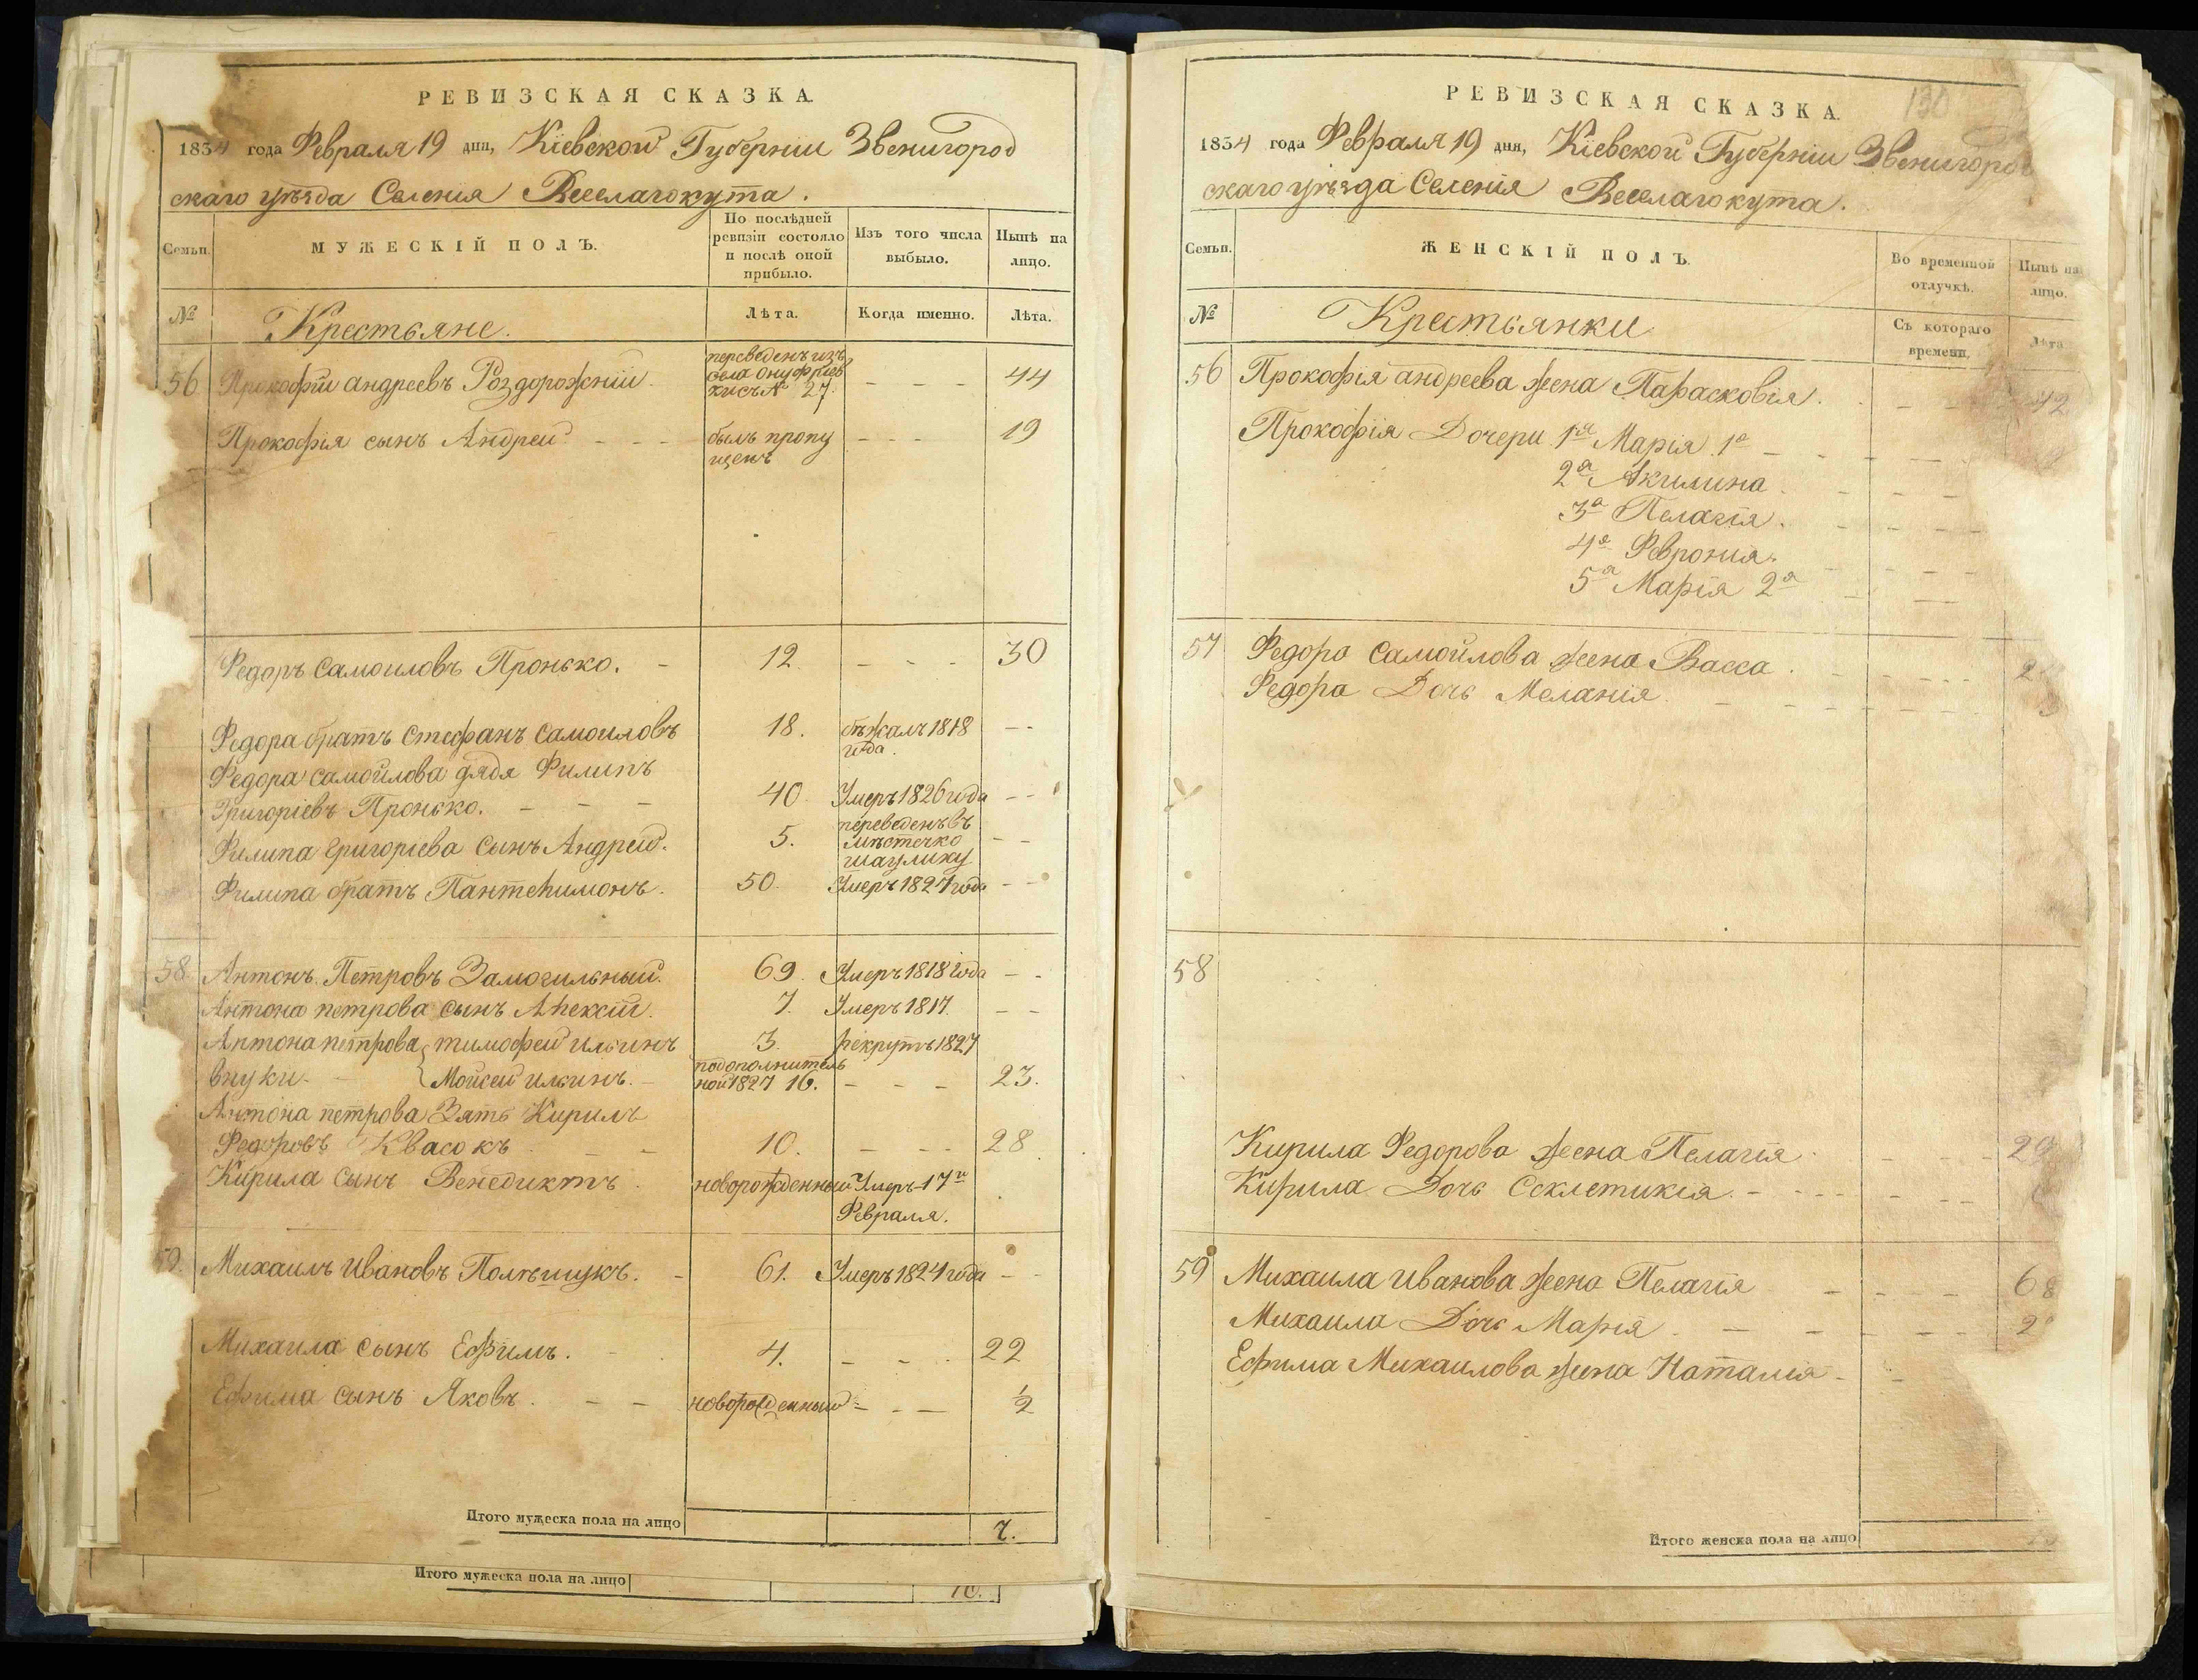 РЕВИЗСКАЯ СКАЗКА.
1834 года Февраля 19 дня, Кіевской Губерніи Звенигород
скаго уѣзда Селенія Веселагокута.
Семьи.
МУЖЕСКІЙ ПОЛЪ.
По послѣдней ревизіи состояло и послѣ оной прибыло.
Изъ того числа выбыло.
Нынѣ на лицо.
№
Крестьяне.
Лѣта.
Когда именно.
Лѣта.
56 Прокофій андреевъ Роздорожній. переведенъ изъ села Онуфріев № 27. - - - 44
Прокофія сынъ Андрей - - - былъ пропу щенъ - - - 19
Федоръ Самоиловъ Пронько. - 12. - - - 30
Федора братъ Стефанъ Самоиловъ 18. бѣжалъ 1818 года. - -
Федора самойлова дядя Филипъ
Григоріевъ Пронько. - - - 40 Умеръ 1826 года - -
Филипа григоріева сынъ Андрей. 5. переведенъ въ мѣстечко - -
Филипа братъ Пантелимонъ. 50. Умеръ 1827 года - -
58 Антонъ Петровъ Замогильный. 69. Умеръ 1818 года - -
Антона петрова сынъ Алексій. 7. Умеръ 1817. - -
Антона петрова { тимофей ильинъ 3. рекрутъ 1827
внуки - { Мойсей ильинъ. - подополнитель ной 1827 16. - - - 23.
Антона петрова Зять Кирилъ
Федоровъ Квасокъ - - - 10. - - - 28
Кирила сынъ Венедиктъ. новорожденный Умеръ 17го Февраля.
59. Михаилъ Ивановъ Полѣщукъ. - 61. Умеръ 1824 года - -
Михаила сынъ Ефимъ. - 4. - - - 22
Ефима сынъ Яковъ. - - новорожденный - - - 1/2
Итого мужеска пола на лицо 7.
Итого мужеска пола на лицо 10.
РЕВИЗСКАЯ СКАЗКА.
130
1834 года Февраля 19 дня, Кіевской Губерніи Звенигород
скаго уѣзда Селенія Веселагокута.
Семьи.
ЖЕНСКІЙ ПОЛЪ.
Во временной отлучкѣ.
Нынѣ на лицо.
№
Крестьянки
Съ котораго времени.
Лѣта
56 Прокофія андреева жена Параскковія. - - 42
Прокофія Дочери 1я Марія 1я - - - -
2я Акилина. - - -
3я Пелагія. - - - -
4я Феврония. - - -
5я Марія 2я - -
57 Федора Самойлова жена Васса. - - - - - 2
Федора Дочь Меланія. - - - - - -
58
Кирила Федорова жена Пелагія. - - - 29
Кирила Дочь Секлетикія. - - - - - -
59 Михаила Иванова жена Пелагія - - - - 68
Михаила Дочь Марія. - - - - - 2
Ефима Михаилова жена Наталія - -
Итого женска пола на лицо